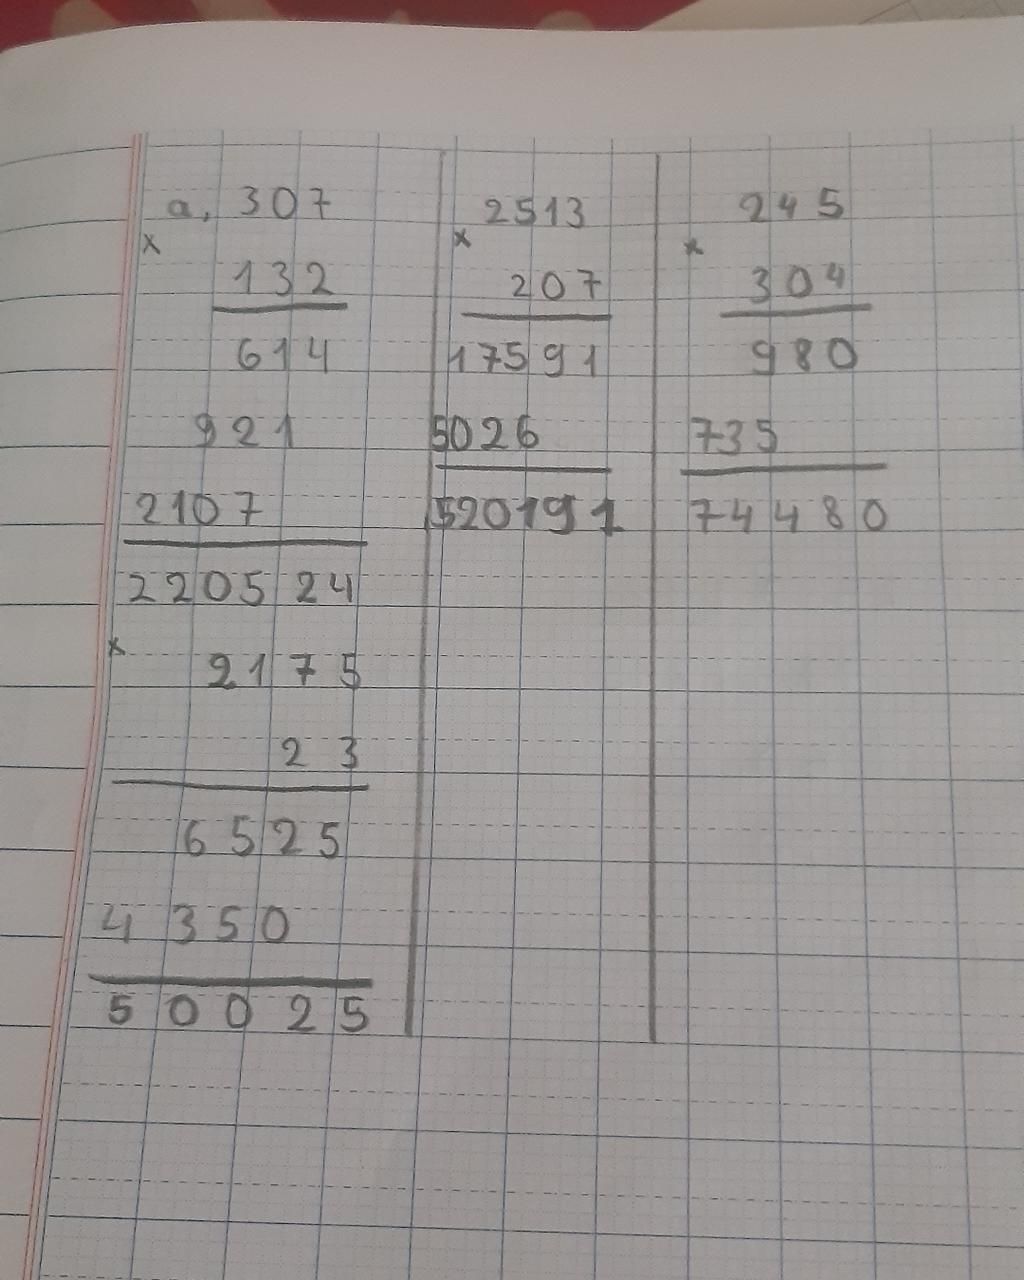 a, 307
x
132
614
921
2107
220524
x
2175
23
6525
4350
50025
2513
x
207
17591
5026
520191
245
x
304
980
735
74480